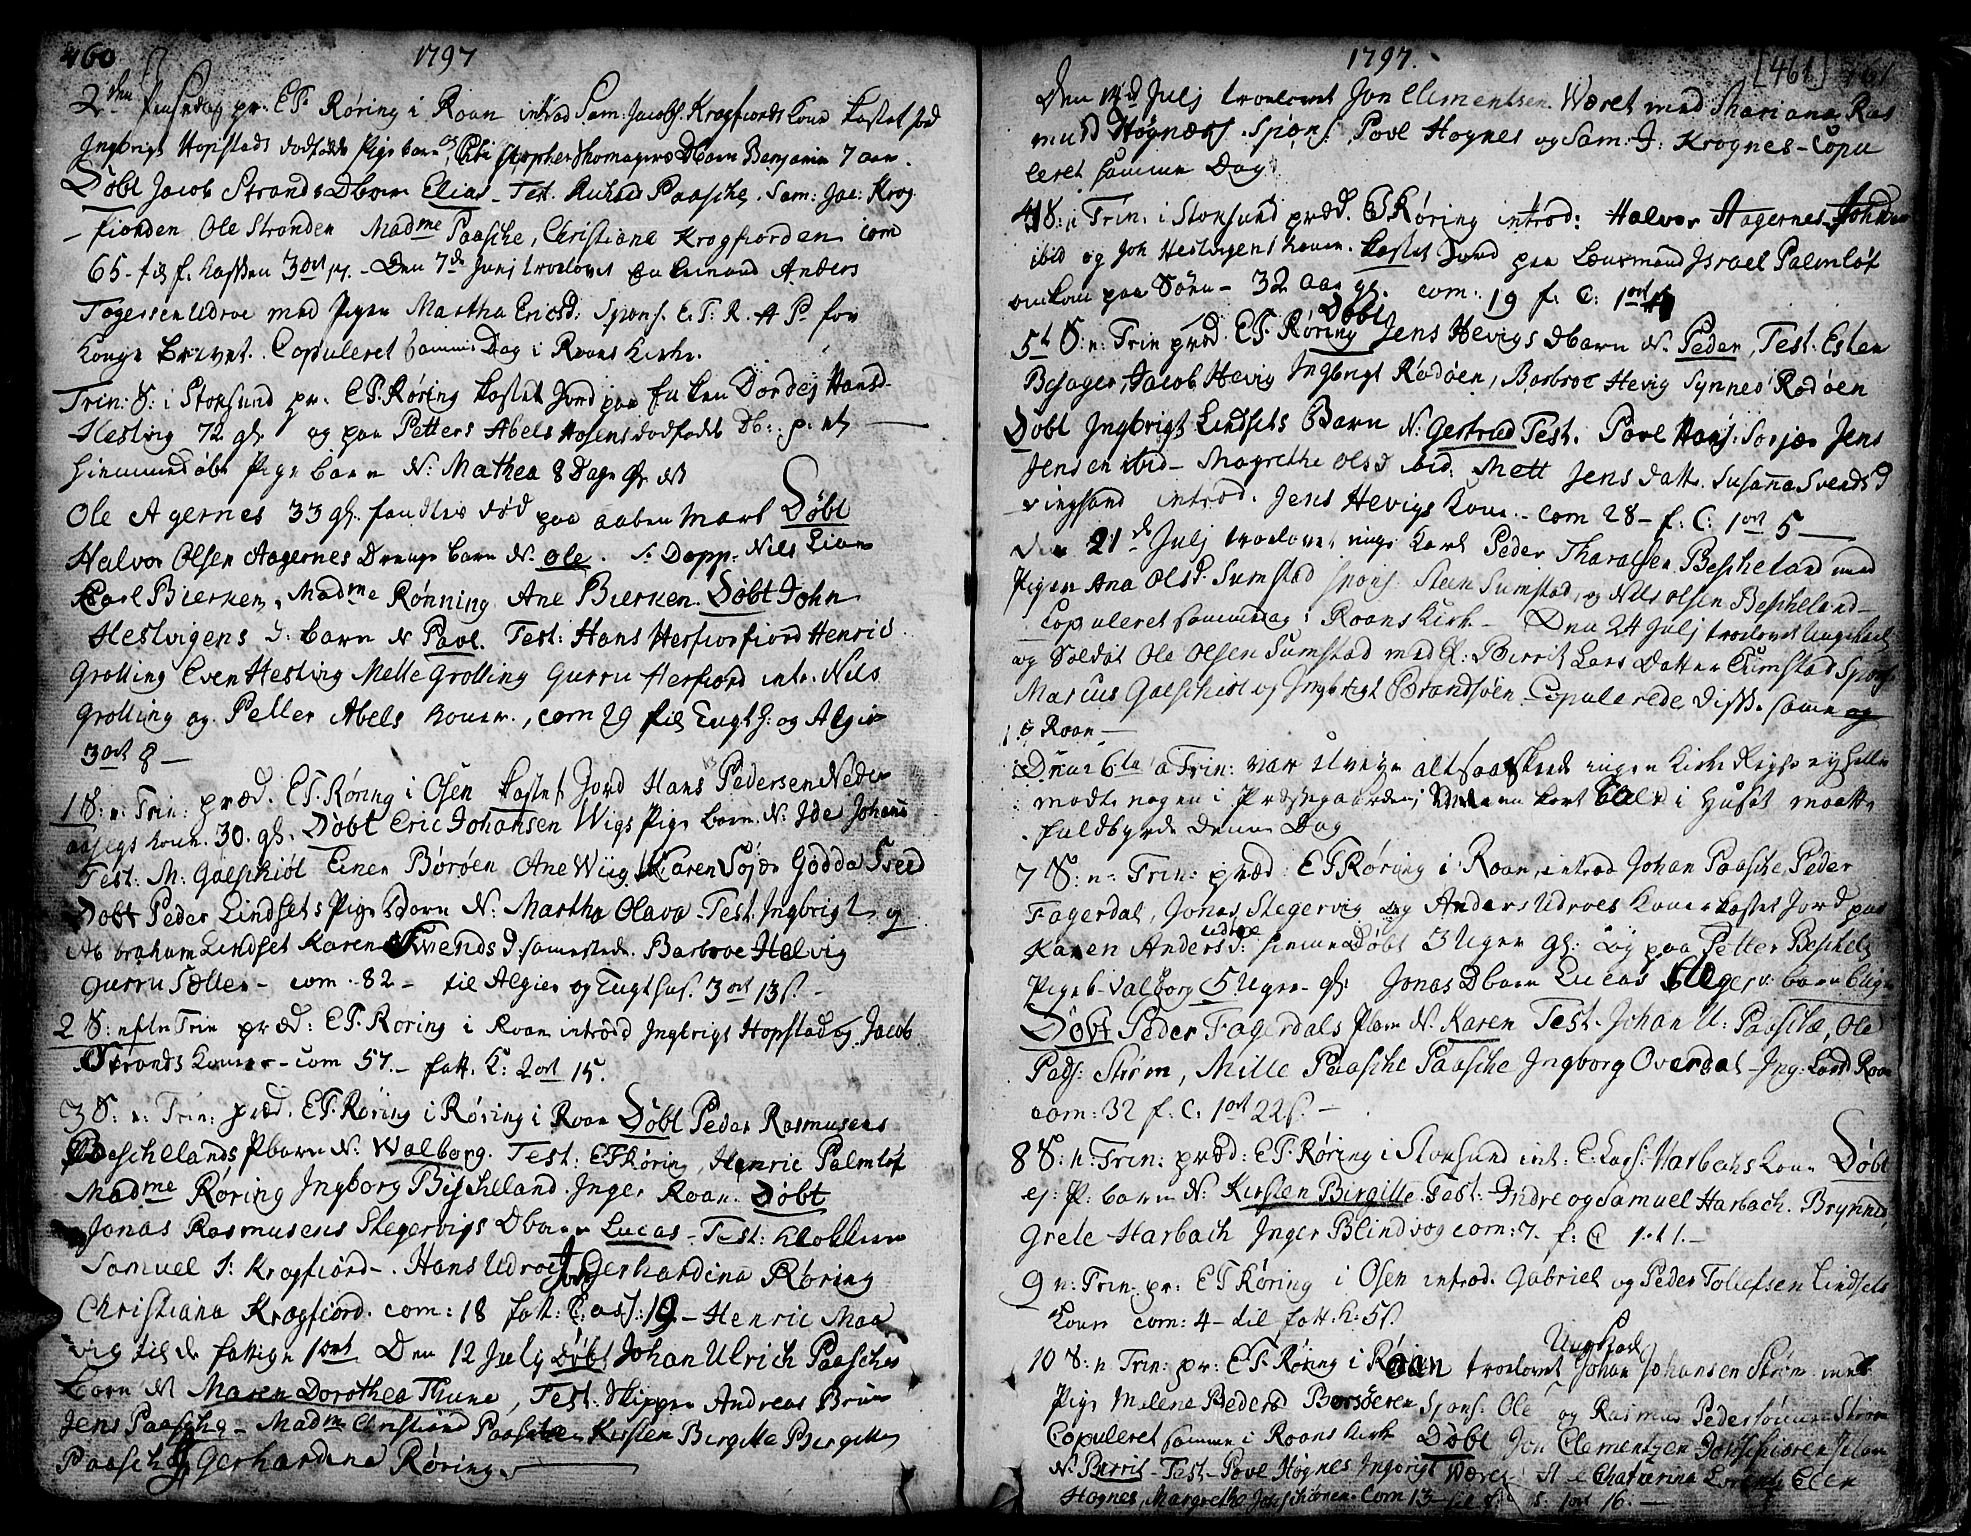 460 1797
2den Paaskedag pr. E T. Røring i Roan introd Sam: Jacobs. Kragfiords Kone kastet Jord
Ingbrigt Hopstads dødfødte Pige barn og Christopher Thomagers Dbarn Benjamin 7 aar.
Døbt Jacob Strands Dbarn Elias - Test. Richard Paasche, Sam: Jac: Krog
fiorden Ole Stranden Madme Paasche, Christiane Krogfiorden com
65 - til f. Kassen 3 ort 17. - Den 7de Junj troelovet Enkemand Anders
Tagessen Udroe med Pigen Martha Ericsd: Spons. E. T: R. A P. for
Konge brevet. Copuleret samme Dag i Roans Kirke.
Trin: S: i Stoksund pr. E T. Røring kastet Jord paa Enken Dordej Hansd.
Hestvig 72 gl. og paa Petters Abels Hosens dødfødt Db:
Hiemmedøbt Pige barn N: Mathea 8 Dage gl.
Ole Agernes 33 gl. fandtes død paa aaben Mark Døbt
Halvor Olsen Aagernes Drenge barn N. Ole. Nils Lian
Carl Bierken, Madme Rønning Ane Bierken. Døbt John
Hestvigens D: barn N Povl. Test: Hans Herfiord Henric
Grolling Even Hestvig Mette Grolling Gurru Herfiord intr. Nils
Grolling og Petter Abels Koner, com 29 til Tugth: og Algier
3 ort 8 -
1 S: n: Trin: præd. E T. Røring i Osen kastet Jord Hans Pedersen
30. gl. Døbt Eric Johansen Wigs Pige barn N. Ide Johanna
Test: M: Gaeschiöl Einer Børøen Ane Wiig, Karen Søjer Godda
Døbt Peder Lindsets Pige Barn N: Martha Olava - Test. Ingbrigt og
Abraham Lindset Karen Svends D: sammestede. Barbroe Helvig
Gurru Sætter - com 82 - til Algier og Tugthus. 3 ort 13 s. -
2 S: efter Trin præd: E T. Røring i Roan introd Ingbrigt Hopstad og Jacob
Strands Koner - com 57. - fatt. K: 2 ort 15.
3 S: n: Trin: præd. E T. Røring i Røring i Roan Døbt Peder Rasmusens
Beschelands Pbarn N: Walborg. Test: E T Røring, Henric Palmløf
Madme Røring Ingborg Bescheland. Inger Roan. Døbt
Jonas Rasmusens Skegervigs Dbarn Lucas - Test: Klokkeren
Samuel J: Kragfiord -. Hans Udroe Gerhardina Røring
Christiana Kragfiord. com: 18 fatt: C: 19 - Henric Maa
vig til de fattige 1 ort Den 12 July Døbt Johan Ulrich Paasches
barn N Maren Dorothea Thune, Test: Skipper Andreas Bruun
Jens Paasche - Madme Christiane Paasche Kirsten Birgitte
Paasche Gerhardina Røring.
1797. [461] 461
Den 14d Julj troelovet Jon Clementsen Wæret med Mariana Ras
musd Høgnæss. Spons. Povl Hognes og Sam: J: Krognes - Copu
leret samme Dag
4 S: n Trin: i Stoksund præd. E T Røring introd: Halvor Aagernes
ibid og Joh Hestvigens Koner. kastet Jord paa Lænsmand Israel Palmløf
omkom paa Søen - 32 aar gl. com: 19 f. C: 1 ort
5t S: n: Trin præd. E T. Røring Døbt Jens Hevigs Dbarn N. Peder, Test. Esten
Besager, Jacob Hevig Ingbrigt Rødøen, Barbroe Hevig Synned Rødøen
Døbt Ingbrigt Lindsets Barn N: Gertrud Test. Povl Hans. Sorjær Jens
Jensen ibid - Magrethe Olsd ibid: Mett Jens datt. Susanna Svendsd
vingsand introd. Jens Hevigs Kone - com 28 - f: C: 1 ort 5 -
Den 21d Julj troelovet unge Karl Peder Tharalsen Bescheland med
Pigen Ana Olsd. Sumstad spons. Steen Sumstad, og Nils Olsen Bescheland -
Copuleret sammedag i Roans Kirk - Den 24 Julj troelovet Ungekarl
og Soldat Ole Olsen Sumstad med P: Berrit Lars Datter Sumstad Spons.
Marcus Gaeschiöl og Ingbrigt Brandsøen. Copulerede Disse samme
i Roan -
6te a Trin: var altsaa skeede ingen Kirke Rejse ej heller
mødte nogen i Præstegaarden, en kort Bøn i Huset maatte
fuldbyrde denne Dag
7 S: n: Trin: præd: E T Røring i Roan, introd Johan Paasche, Peder
Fagerdal, Jonas Skegervig og Anders Udroes Koner kastet Jord paa
Karen Anders D: Udroe hiemmedøbt 3 Uger gl: og paa Petter Beschels
Pigeb. Valborg 5 Uger gl: Jonas Dbarn Lucas Skegerv:
Døbt Peder Fagerdals Pbarn N. Karen Test - Johan U: Paasche, Ole
Peds: Strøm, Mille Paasche Paasche Ingborg Overdal - Roan
com: 32 f. C: 1 ort 22 s. -
8 S: n: Trin: præd: E T. Røring i Stoksund int: E. Lars: Harbachs Kone Døbt
ej: P: barn N: Kirsten Birgitte. Test: Indre og Samuel Harbach. Brynnild
Grete Harbach Inger Blindvog com: 7. f: C 1.
9 n: Trin: pr: E T Røring i Osen introd. Gabriel og Peder Tollefsen Lindsets
Koner com: 4 - til fatt. K: 5 s
10 S: n Trin: pr: E T. Røring i Roan troelovet Ungkarl Johan Johansen Strøm med
Pige Malena Pedersd Borsøeren Spons. Ole og Rasmus Pedersønner Strøm
Copuleret samme i Roans Kirk Døbt Jon Clementzen
N. Berrit - Test - Povl Høgnes Ingbrigt Wæret Chatrina
Hognes, Margrethe com 13 - 1 ort 16. -